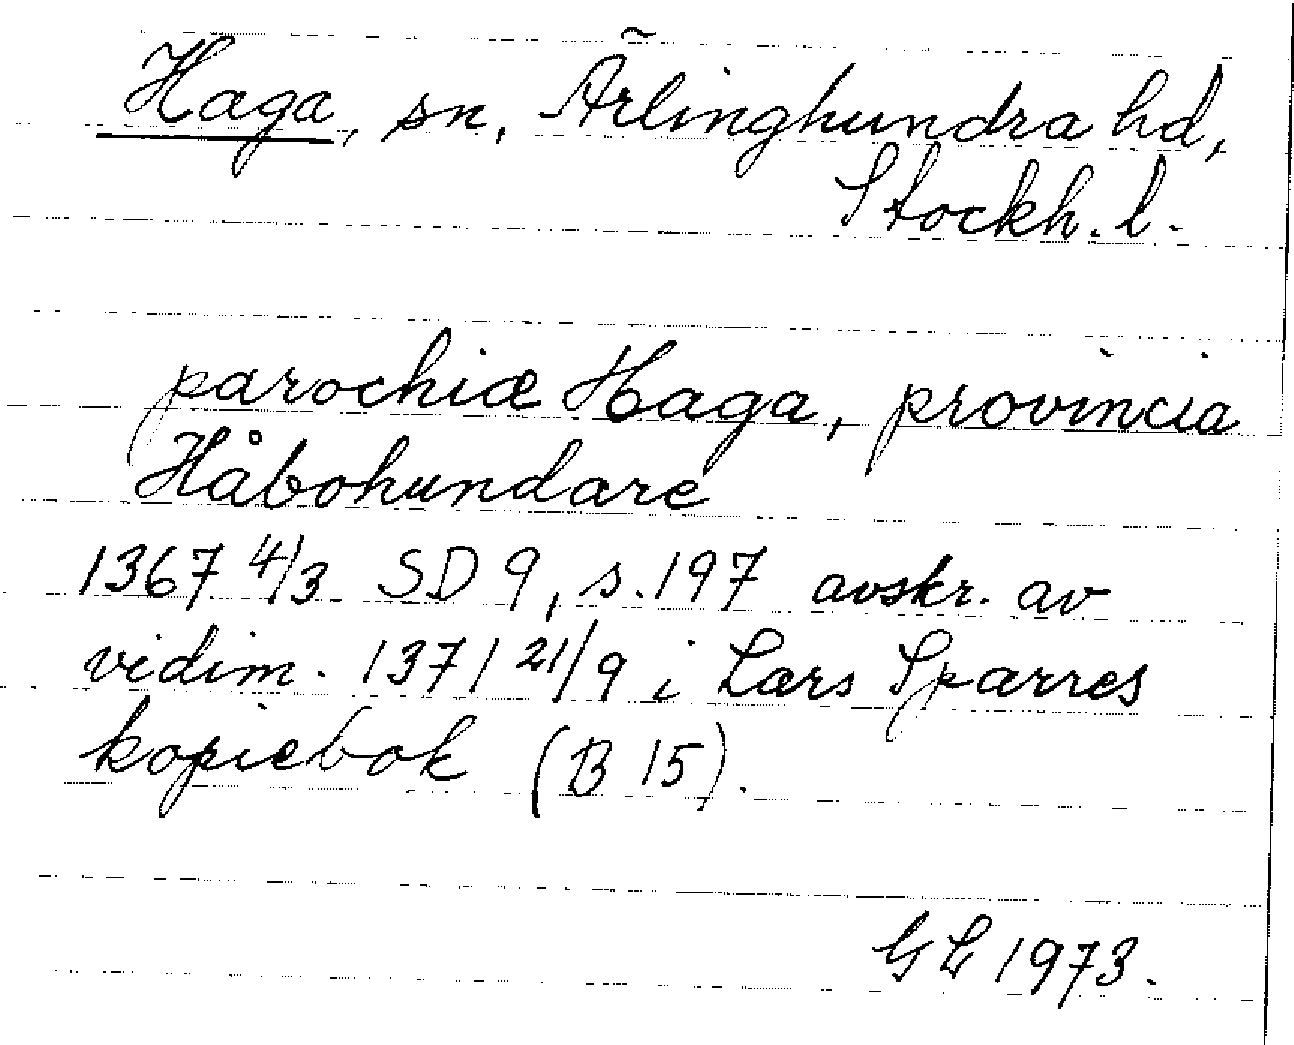 Haga, sn, Ärlinghundra hd,
Stockh. l.
parochiæ Haga, provincia
Håbohundare
1367 4/3 SD 9, s. 197 avskr. av
vidim. 1371 21/9 i Lars Sparres
kopiebok (B 15).
GL 1973.